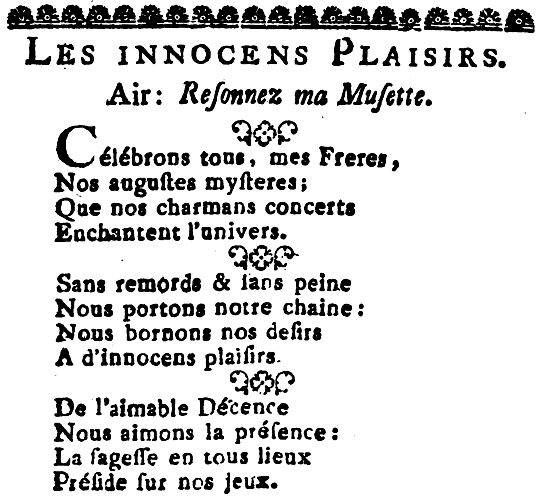 LES INNOCENS PLAISIRS.
Air: Reſonnez ma Muſette.
Célébrons tous, mes Freres,
Nos auguſtes myſteres;
Que nos charmans concerts
Enchantent l'univers.
Sans remords & ſans peine
Nous portons notre chaine:
Nous bornons nos deſirs
A d'innocens plaiſirs.
De l'aimable Décence
Nous aimons la préſence:
La ſageſſe en tous lieux
Préſide ſur nos jeux.